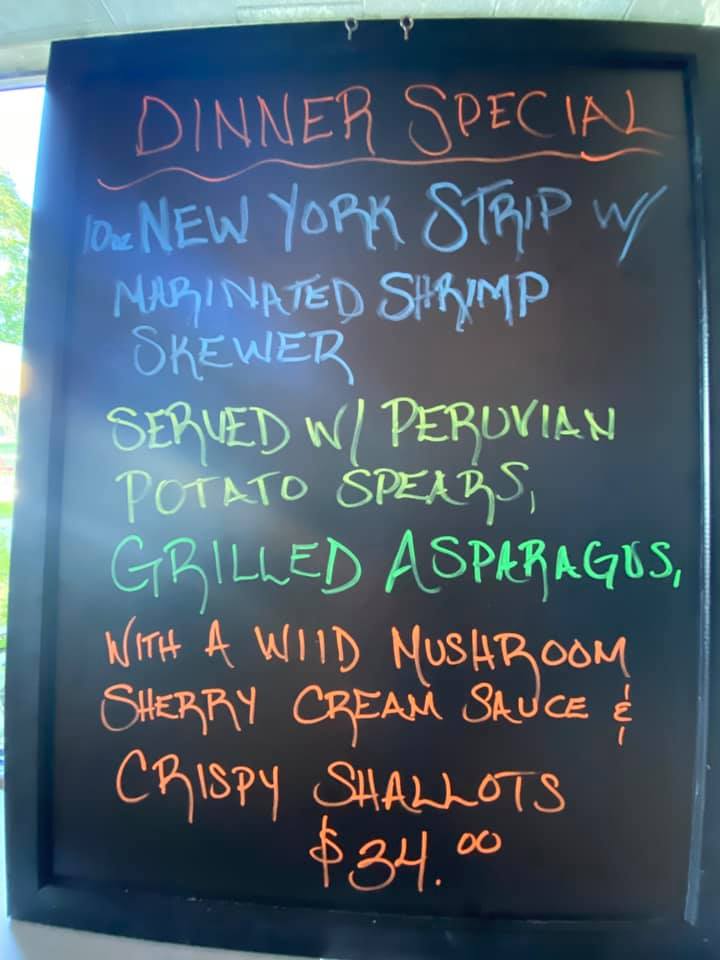 DINNER SPECIAL
10oz NEW YORK STRIP W/
MARINATED SHRIMP
SKEWER
SERVED W/ PERUVIAN
POTATO SPEARS,
GRILLED ASPARAGUS,
WITH A WIID MUSHROOM
SHERRY CREAM SAUCE &
CRISPY SHALLOTS
$34.00